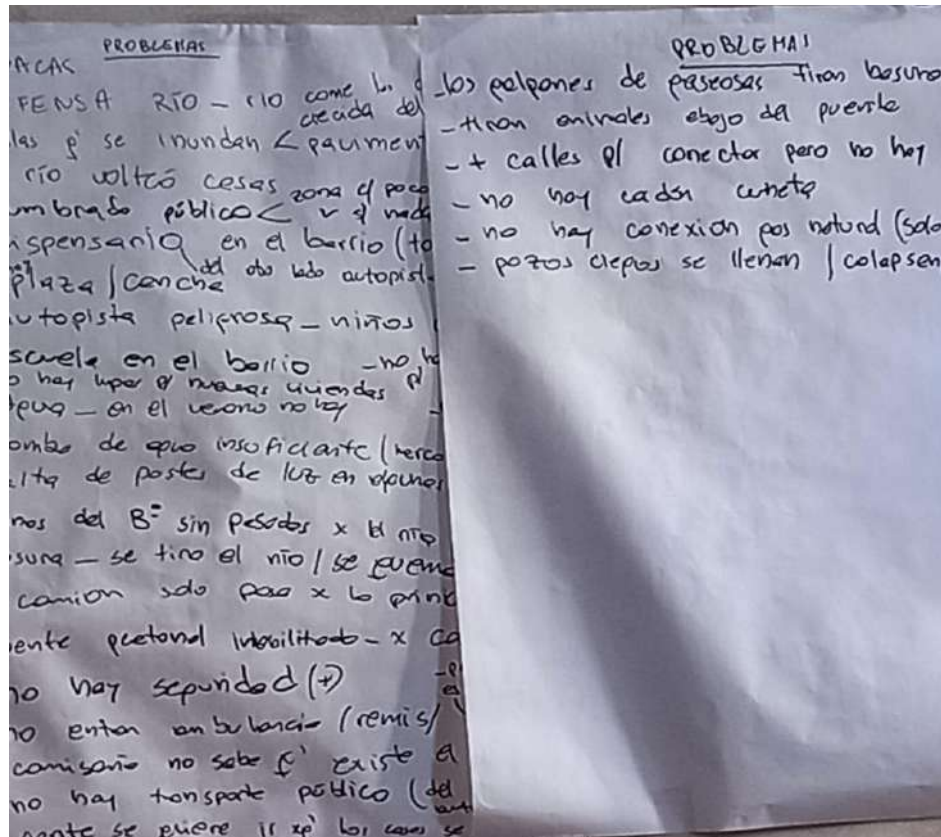 PROBLEMAS
ACAS
FENSA RÍO - río come la
crecida del
las q' se inundan < pavimen
río volteó casas zona c/ poco
mbrado público < v c/ nada
ispensario en el barrio (to
del otro lado autopist
plaza / cancha
utopista peligrosa - niños
scuela en el barrio - no ha
o hay lugar p/ nuevas viviendas p/
agua - en el verano no hay
omba de agua insuficiente (
lta de postes de luz en algunas
nos del Bº sin pasados x el río
sura - se tira el río / se quema
camion solo pasa x la princ
ente peatonal inhabilitado - x ca
no hay seguridad (+)
no entra ambulancia (remis/
comisaría no sabe q' existe el
no hay transporte público (del
gente se quiere ir xq' las casas se
PROBLEMAS
- los galpones de gaseosas tiran basura
- tiran animales abajo del puente
- + calles p/ conectar pero no hay
- no hay cordón cuneta
- no hay conexión gas natural (solo
- pozos ciegos se llenan / colapsan